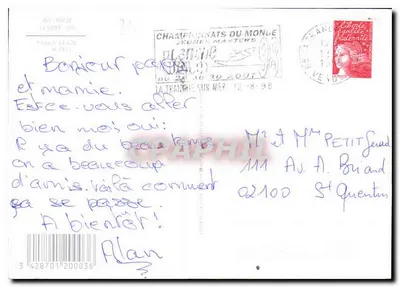 CHAMPIONNATS DU MONDE
JEUNES MASTERS
PLANCHE
LA TRANCHE SUR MER 12-8-98
Bonjour papi
et mamie.
Est-ce-vous aller
bien moi oui.
Il y a du beau temps
on a beaucoup
d'amis. voilà comment
ça se passe.
A bientôt!
Alan
Mr et Mme PETIT Gerard
111 Av. A. Briand
02100 St Quentin
3 428701 200036